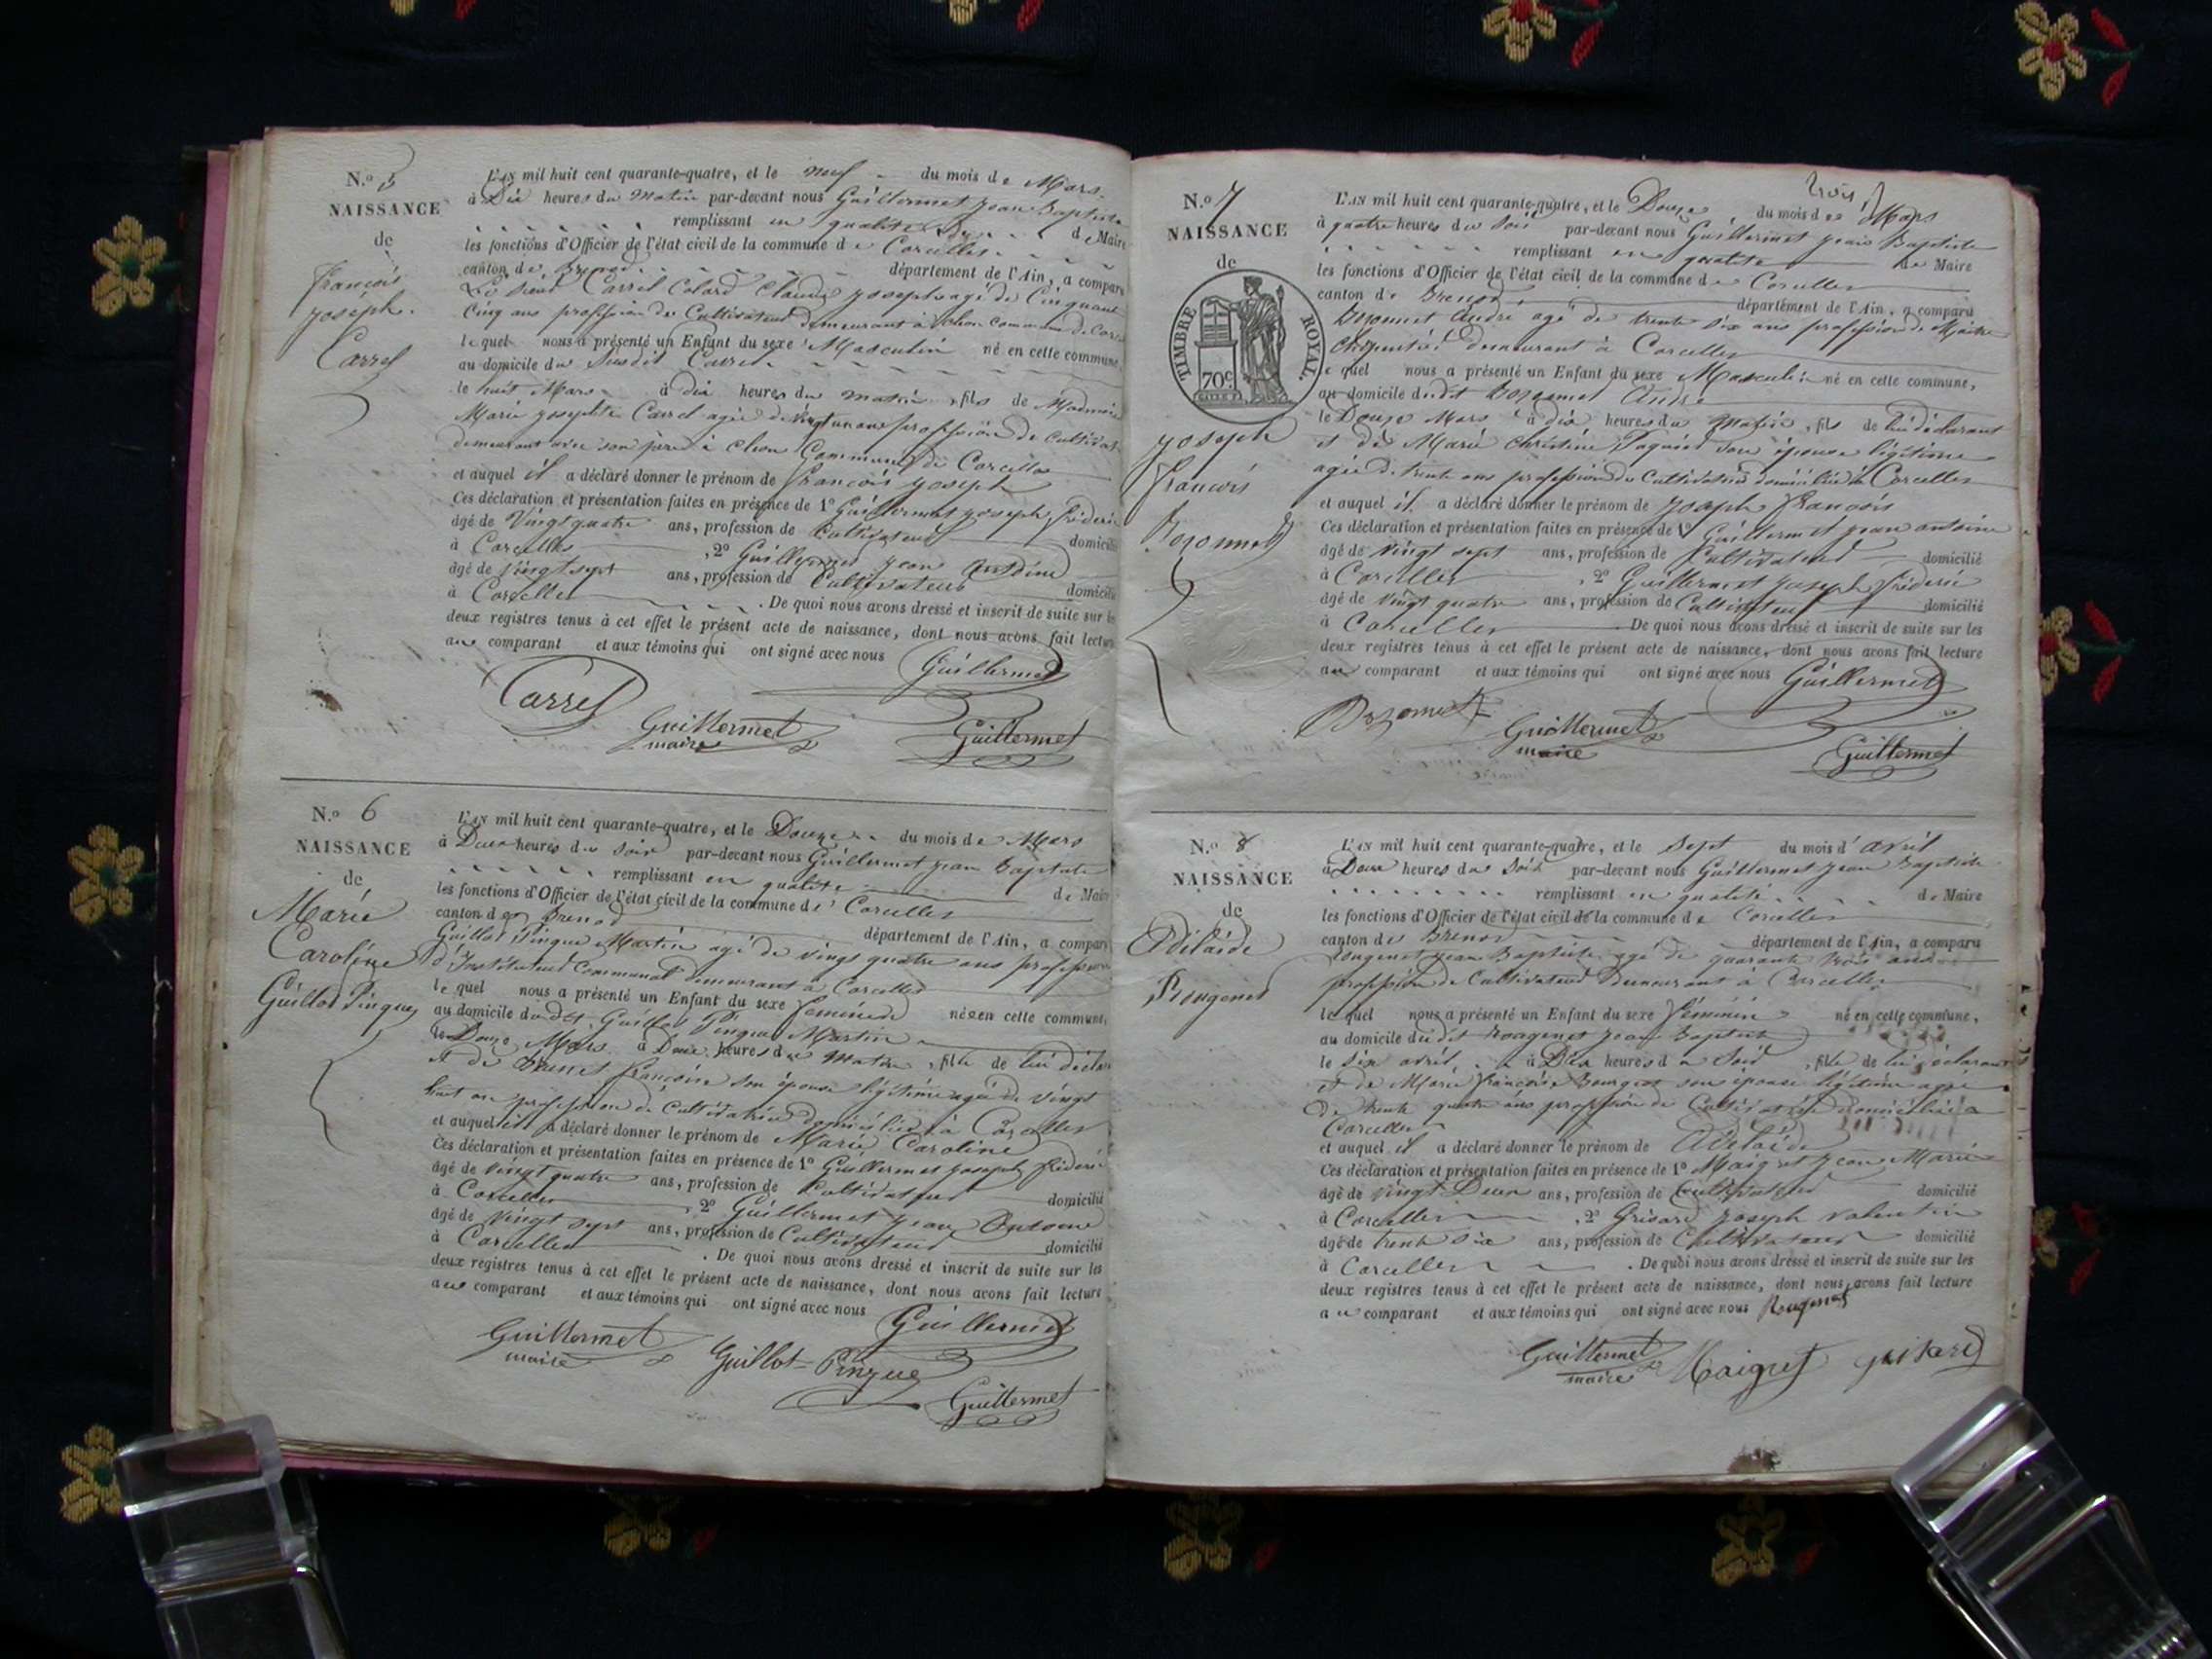 N.º 5
NAISSANCE
de
François
joseph
Carrel
L'AN mil huit cent quarante-quatre, et le neuf du mois de Mars
à Dix heures du Matin par-devant nous Guillermet jean Baptiste
remplissant en qualité de Maire
les fonctions d'Officier de l'état civil de la commune de Corcelles
canton de Brenod département de l'Ain, a comparu
Le Sieur Carrel Colard Claude joseph agé de Cinquante
Cinq ans profession de Cultivateur demeurant à commune de
lequel nous a présenté un Enfant du sexe Masculin né en cette commune,
au domicile du Susdit Carrel
le huit Mars à dix heures du matin, fils de
Marie josephte Carrel agée de vingt un ans profession de
demeurant avec son père à Commune de Corcelles
et auquel il a déclaré donner le prénom de François joseph
Ces déclaration et présentation faites en présence de 1º Guillermet joseph fréderic
âgé de Vingt quatre ans, profession de Cultivateur domicilié
à Corcelles, 2º Guillermet jean Antoine
âgé de vingt sept ans, profession de Cultivateur domicilié
à Corcelles. De quoi nous avons dressé et inscrit de suite sur les
deux registres tenus à cet effet le présent acte de naissance, dont nous avons fait lecture
au comparant et aux témoins qui ont signé avec nous Guillermet
Carrel
Guillermet
maire
Guillermet
N.º 6
NAISSANCE
de
Marie
Caroline
Guillot Pingue
L'AN mil huit cent quarante-quatre, et le Douze du mois de Mars
à Deux heures du soir par-devant nous Guillermet jean Baptiste
remplissant en qualité de Maire
les fonctions d'Officier de l'état civil de la commune de Corcelles
canton de Brenod département de l'Ain, a comparu
Guillot Pingue Martin agé de vingt quatre ans profession
d'Instituteur Communal demeurant à Corcelles
lequel nous a présenté un Enfant du sexe féminin née en cette commune,
au domicile dudit Guillot Pingue Martin
le Douze Mars à heures du Matin, fille de lui déclarant
et de françoise son épouse légitime agée de vingt
huit ans profession de Cultivatrice domiciliée à Corcelles
et auquel il a déclaré donner le prénom de Marie Caroline
Ces déclaration et présentation faites en présence de 1º Guillermet joseph fréderic
âgé de vingt quatre ans, profession de Cultivateur domicilié
à Corcelles, 2º Guillermet jean Antoine
âgé de vingt sept ans, profession de Cultivateur domicilié
à Corcelles. De quoi nous avons dressé et inscrit de suite sur les
deux registres tenus à cet effet le présent acte de naissance, dont nous avons fait lecture
au comparant et aux témoins qui ont signé avec nous Guillermet
Guillermet
maire
Guillot-Pingue
Guillermet
trois
N.º 7
NAISSANCE
de
TIMBRE ROYAL.
70 c.
joseph
françois
L'AN mil huit cent quarante-quatre, et le Douze du mois de Mars
à quatre heures du soir par-devant nous Guillermet jean Baptiste
remplissant en qualité de Maire
les fonctions d'Officier de l'état civil de la commune de Corcelles
canton de Brenod département de l'Ain, a comparu
André agé de trente six ans profession de Maitre
Charpentier demeurant à Corcelles
lequel nous a présenté un Enfant du sexe Masculin né en cette commune,
au domicile dudit André
le Douze Mars à dix heures du Matin, fils de lui déclarant
et de Marie Christine son épouse légitime
agée de trente ans profession de Cultivatrice domiciliée à Corcelles
et auquel il a déclaré donner le prénom de joseph françois
Ces déclaration et présentation faites en présence de 1º Guillermet jean antoine
âgé de vingt sept ans, profession de Cultivateur domicilié
à Corcelles, 2º Guillermet joseph fréderic
âgé de vingt quatre ans, profession de Cultivateur domicilié
à Corcelles De quoi nous avons dressé et inscrit de suite sur les
deux registres tenus à cet effet le présent acte de naissance, dont nous avons fait lecture
au comparant et aux témoins qui ont signé avec nous Guillermet
Guillermet
maire
Guillermet
N.º 8
NAISSANCE
de
Adélaïde
Rougemet
L'AN mil huit cent quarante-quatre, et le sept du mois d'avril
à Deux heures du Soir par-devant nous Guillermet jean Baptiste
remplissant en qualité de Maire
les fonctions d'Officier de l'état civil de la commune de Corcelles
canton de Brenod département de l'Ain, a comparu
jean Baptiste agé de quarante trois ans
profession de Cultivateur Demeurant à Corcelles
lequel nous a présenté un Enfant du sexe féminin né en cette commune,
au domicile dudit jean Baptiste
le six avril à Dix heures du Soir, fille de lui déclarant
et de Marie françoise son épouse légitime agée
de trente quatre ans profession de Cultivatrice domiciliée à
Corcelles
et auquel il a déclaré donner le prénom de Adélaïde
Ces déclaration et présentation faites en présence de 1º Maigret jean Marie
âgé de vingt Deux ans, profession de Cultivateur domicilié
à Corcelles, 2º Grisard joseph valentin
âgé de trente Six ans, profession de Cultivateur domicilié
à Corcelles. De quoi nous avons dressé et inscrit de suite sur les
deux registres tenus à cet effet le présent acte de naissance, dont nous avons fait lecture
au comparant et aux témoins qui ont signé avec nous
Guillermet
maire
Maigret
grisard